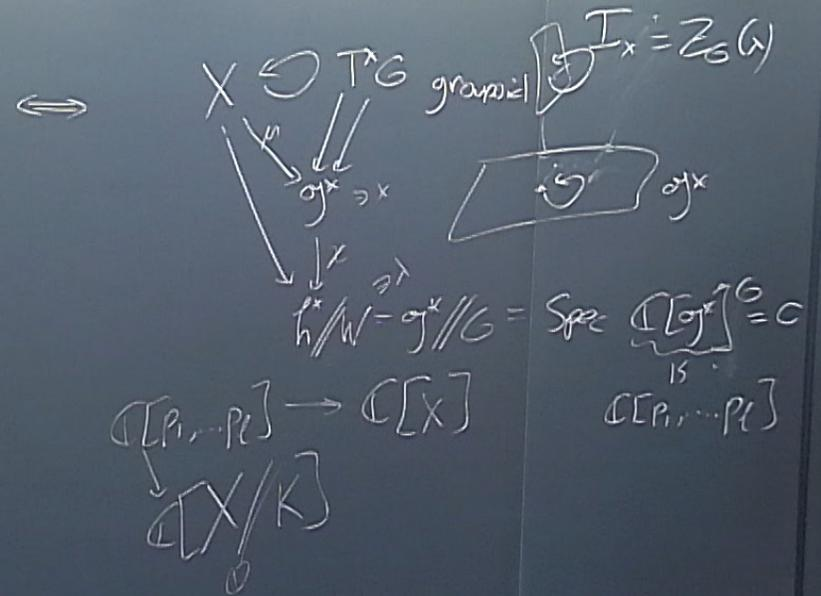 ⟺ X ↺ T*G groupoid I_x = Z_G(x)
μ
g* ∋ x g*
χ ∋ λ
h*/W = g*//G = Spec C[g*]^G = C
C[p₁,...pₗ] → C[X] C[p₁,...pₗ]
C[X//K]